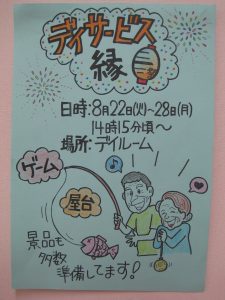 デイサービス
縁
日時:8月22日(火)~28日(月)
14時15分頃~
場所:デイルーム
ゲーム
屋台
景品も
多数
準備してます!